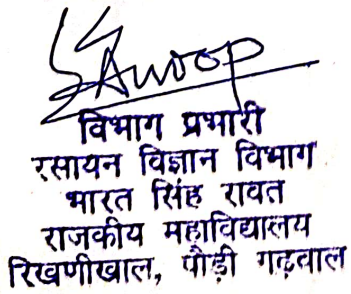 विभाग प्रभारी
रसायन विज्ञान विभाग
भारत सिंह रावत
राजकीय महाविद्यालय
रिखणीखाल, पौड़ी गढ़वाल